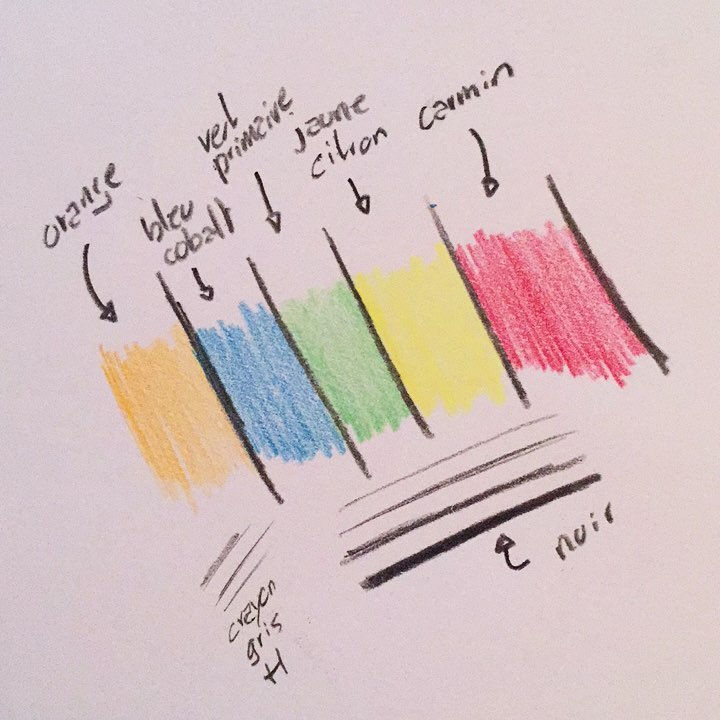 orange
bleu
cobalt
vert
primaire
jaune
citron
carmin
noir
crayon
gris
H